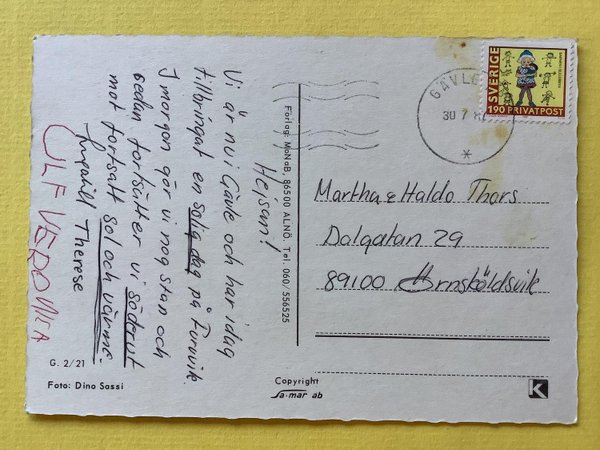 Hejsan!
Vi är nu i Gävle och har idag
tillbringat en solig dag på Furuvik.
I morgon gör vi nog stan och
sedan fortsätter vi söderut
mot fortsatt sol och värme.
Ingahill Therese
ULF VERONICA
G. 2/21
Foto: Dino Sassi
Förlag: MoNaB 86500 ALNÖ. Tel. 060/556525
Copyright
Sa-mar ab
K
SVERIGE
190 PRIVATPOST
GÄVLE
30 7 8
Martha & Haldo Thors
Dalgatan 29
89100 Örnsköldsvik